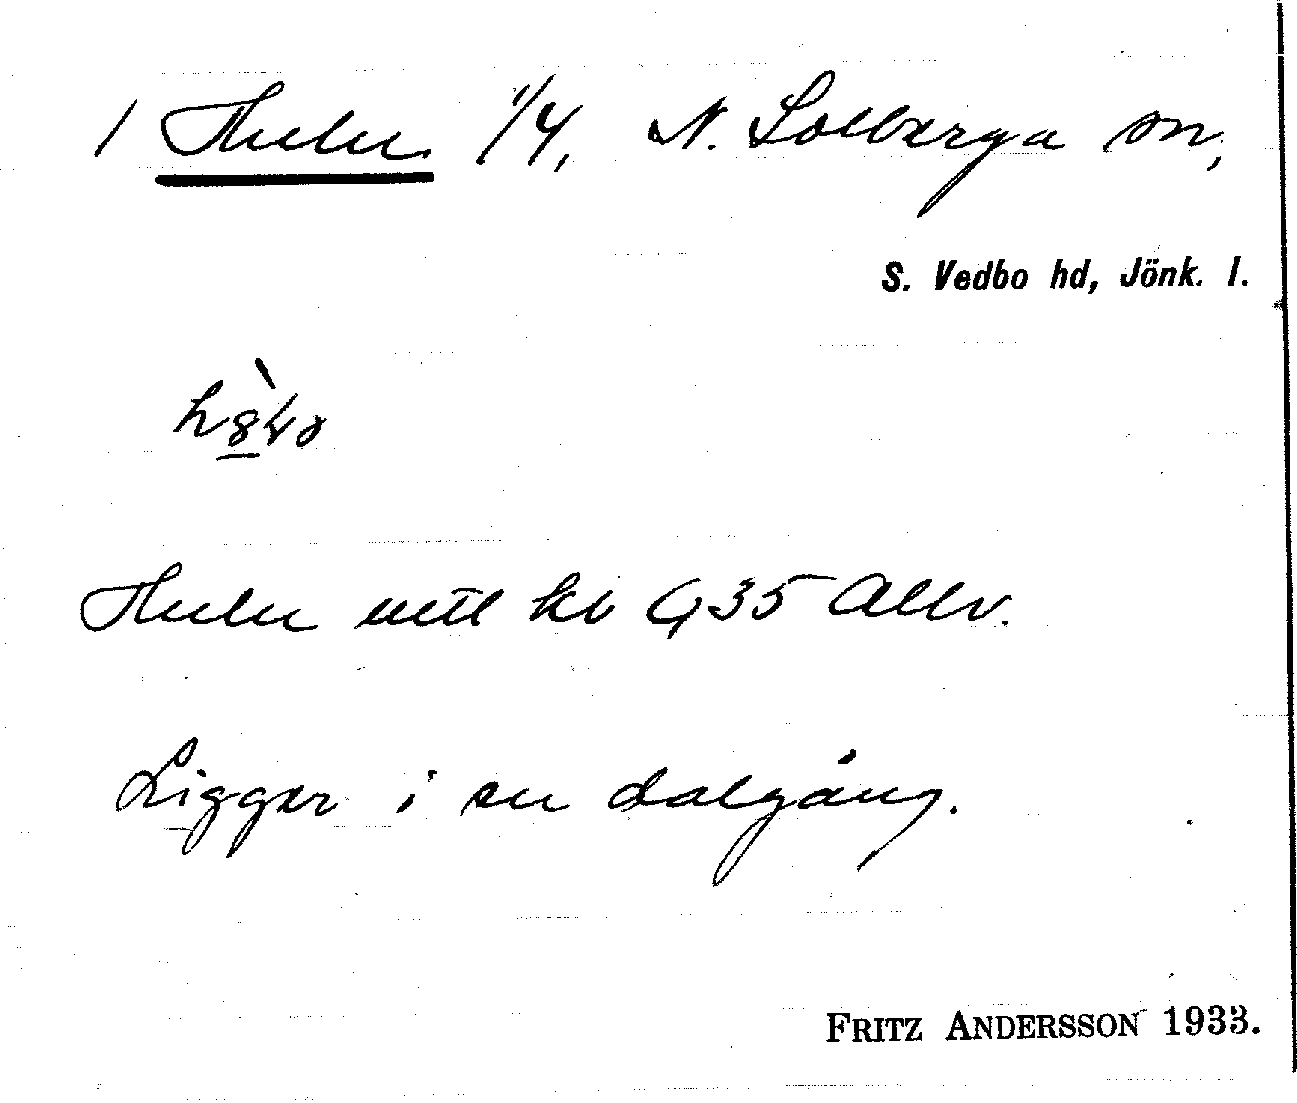 1 Hulu 1/4, N. Solberga sn,
S. Vedbo hd, Jönk. l.
Hulu mtl kb 0,35 Allm.
Ligger i en dalgång.
FRITZ ANDERSSON 1933.